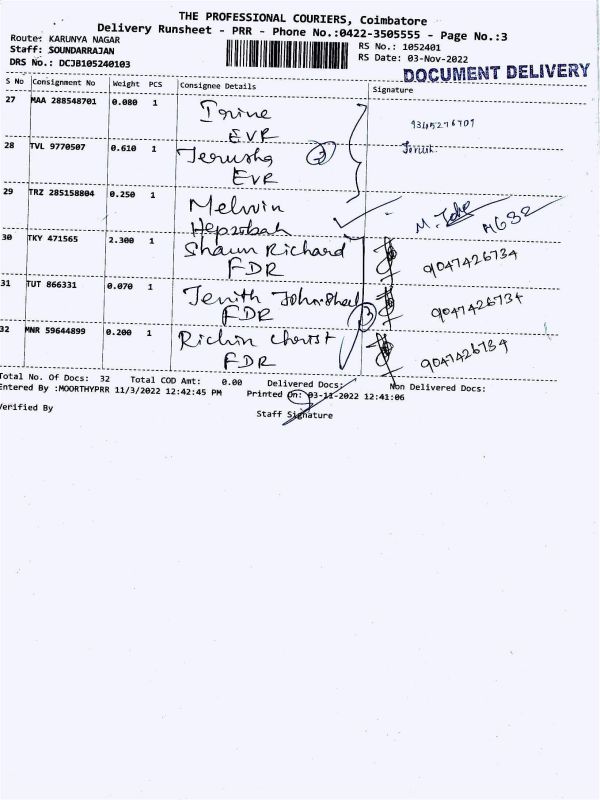 THE PROFESSIONAL COURIERS, Coimbatore
Delivery Runsheet - PRR - Phone No.:0422-3505555 - Page No.:3
Route: KARUNYA NAGAR
Staff: SOUNDARRAJAN
DRS No.: DCJB105240103
RS No.: 1052401
RS Date: 03-Nov-2022
DOCUMENT DELIVERY
S No Consignment No Weight PCS Consignee Details Signature
27 MAA 288548701 0.080 1 Irine
EVR
28 TVL 9770507 0.610 1 Jerusha
EVR
29 TRZ 285158804 0.250 1 Melwin
Hepzebah
30 TKY 471565 2.300 1 Shaun Richard 9047426734
FDR
31 TUT 866331 0.070 1 Jenith 9047426734
FDR
32 MNR 59644899 0.200 1 Richin Christ 9047426734
FDR
Total No. Of Docs: 32 Total COD Amt: 0.00 Delivered Docs: Non Delivered Docs:
Entered By :MOORTHYPRR 11/3/2022 12:42:45 PM Printed On: 03-11-2022 12:41:06
Verified By
Staff Signature